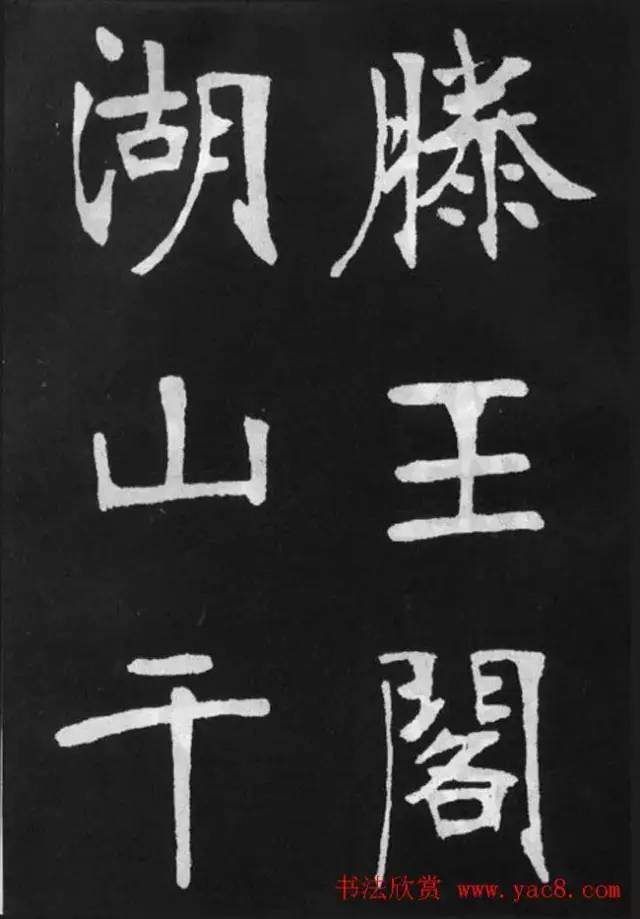 滕王閣
湖山千
书法欣赏 www.yac8.com